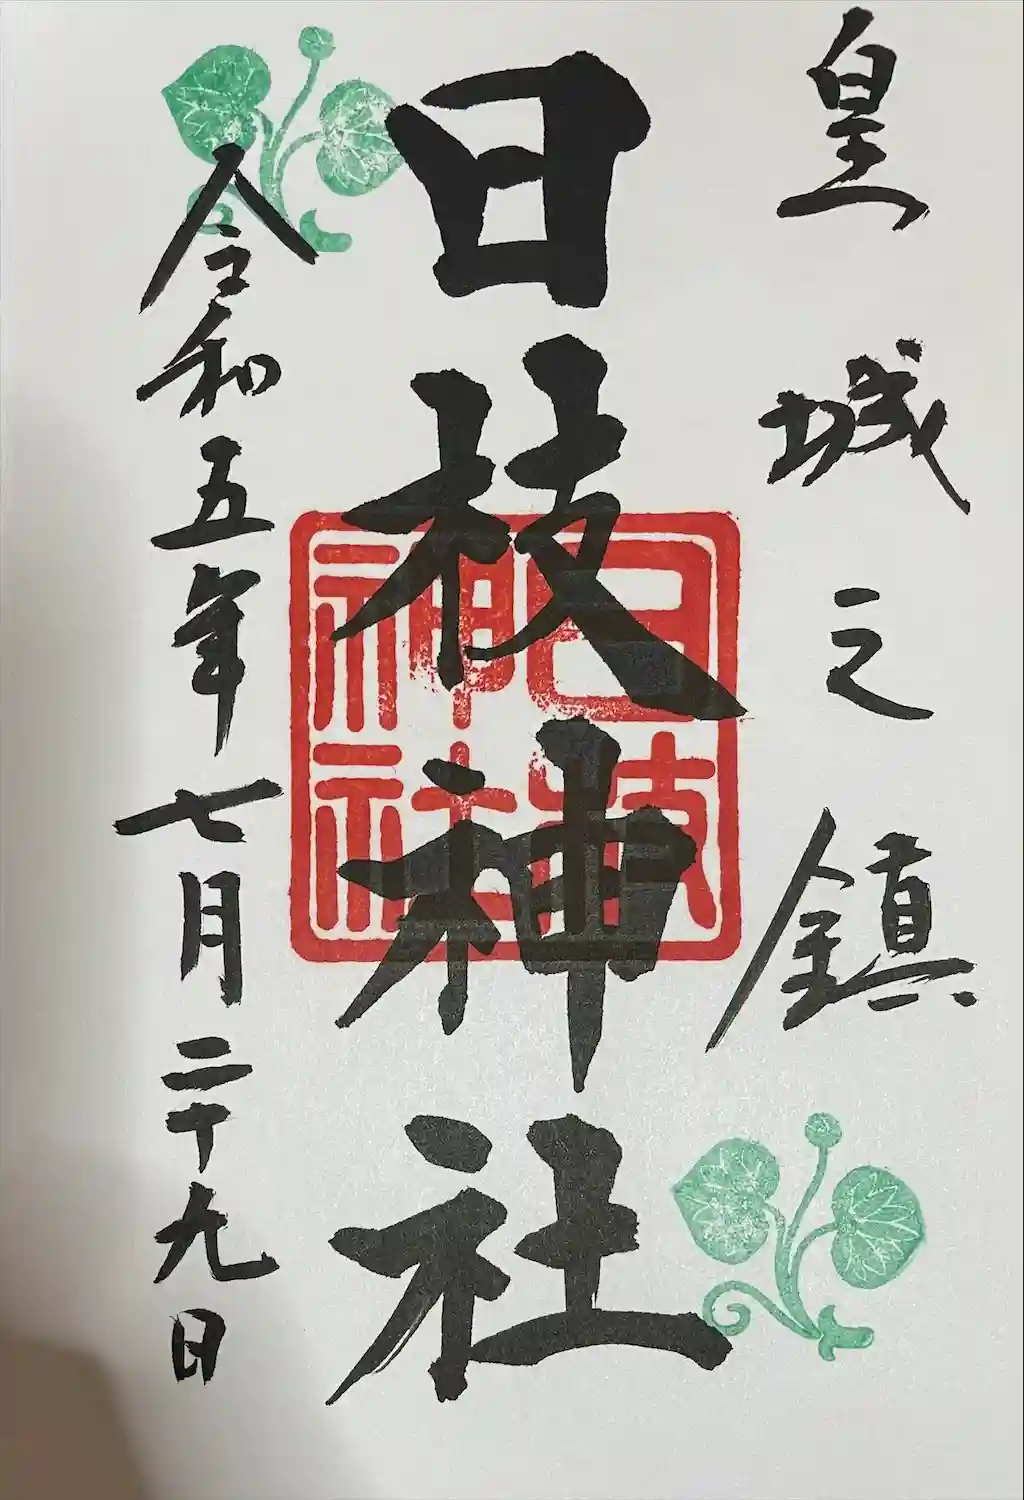 皇城之鎮
日枝神社
日枝
神社
令和五年七月二十九日